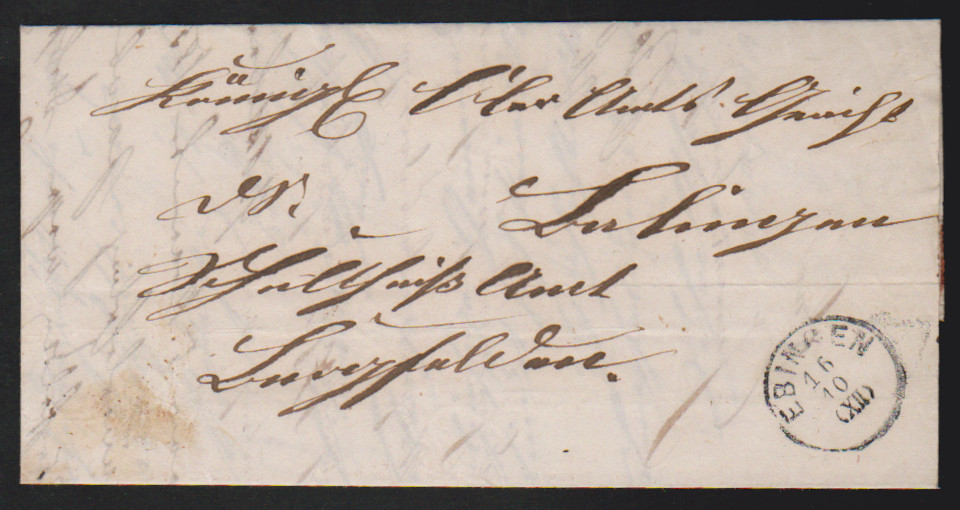 Königl Ober Amts Gericht
Balingen
Schultheiß Amt
Burgfelden.
EBINGEN
16
10
(XII)